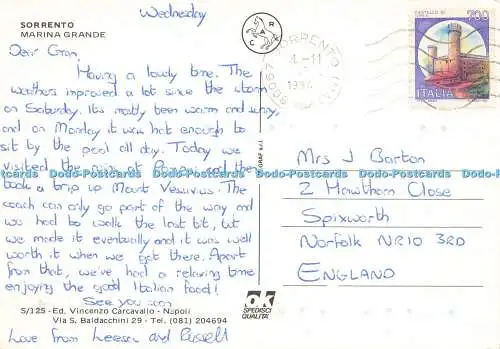 SORRENTO
MARINA GRANDE
Wednesday
Dear Gran,
Having a lovely time. The
weathers improved a lot since the storm
on Saturday. It's mostly been warm and sunny,
and on Monday it was hot enough to
sit by the pool all day. Today we
visited the ruins at Pompeii and then
took a trip up Mount Vesuvius. The
coach can only go part of the way and
we had to walk the last bit, but
we made it eventually and it was well
worth it when we got there. Apart
from that, we've had a relaxing time
enjoying the good Italian food!
See you soon
S/125 - Ed. Vincenzo Carcavallo - Napoli
Via S. Baldacchini 29 - Tel. (081) 204694
Love from and Russell
CAR
80067 SORRENTO
4-11
CASTELLO DI
700
ITALIA
Mrs J Barton
2 Hawthorn Close
Spixworth
Norfolk NR10 3RD
ENGLAND
ok
SPEDISCI
QUALITA'
Dodo-Postcards Dodo-Postcards Dodo-Postcards Dodo-Postcards Dodo-Postcards